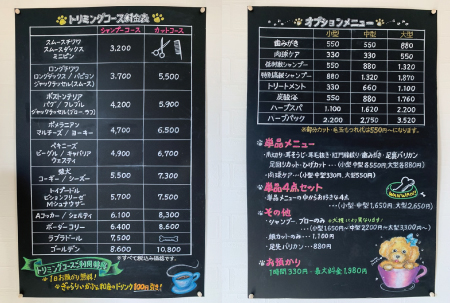 トリミングコース料金表
シャンプーコース カットコース
スムースチワワ
スムースダックス 3,200
ミニピン
ロングチワワ
ロングダックス / パピヨン 3,700 5,500
ジャックラッセル(スムース)
ボストンテリア
パグ / フレブル 4,200 5,900
ジャックラッセル(ブロークン,ラフ)
ポメラニアン
マルチーズ / ヨーキー 4,700 6,500
ペキニーズ
ビーグル / キャバリア 4,900 6,700
ウェスティ
柴犬
コーギー / シーズー 5,500 7,300
トイプードル
ビションフリーゼ 5,700 7,500
Mシュナウザー
Aコッカー / シェルティ 6,100 8,300
ボーダーコリー 6,400 8,600
ラブラドール 7,500
ゴールデン 8,600 10,800
※すべて税込み価格です。
トリミングコースご利用特典
★1日お預かり無料!
オプションメニュー
小型 中型 大型
歯みがき 550 550 880
肉球ケア 330 330 550
低刺激シャンプー 550 880 1,320
特別高級シャンプー 880 1,320 1,870
トリートメント 330 660 1,100
炭酸浴 550 880 1,760
ハーブスパ 1,100 1,620 2,200
ハーブパック 2,200 2,750 3,520
※部分カット・毛玉もつれ代は550円〜になります。
単品メニュー
・爪切り・耳そうじ・耳毛抜き・肛門腺絞り・歯みがき・足裏バリカン
足回りカット・ひげカット…(小型 中型 各550円 大型各880円)
・肉球ケア…(小型 中型330円 大型550円)
単品4点セット
・単品メニューの中からお好きな4点
…(小型 中型 1,650円 大型2,650円)
その他
・シャンプー、ブローのみ
…(小型 1,650円〜 中型 2,200円〜 大型 3,300円〜)
・顔カットのみ…1,100円
・足先バリカン…880円
お預かり
1時間330円・最大料金1,980円